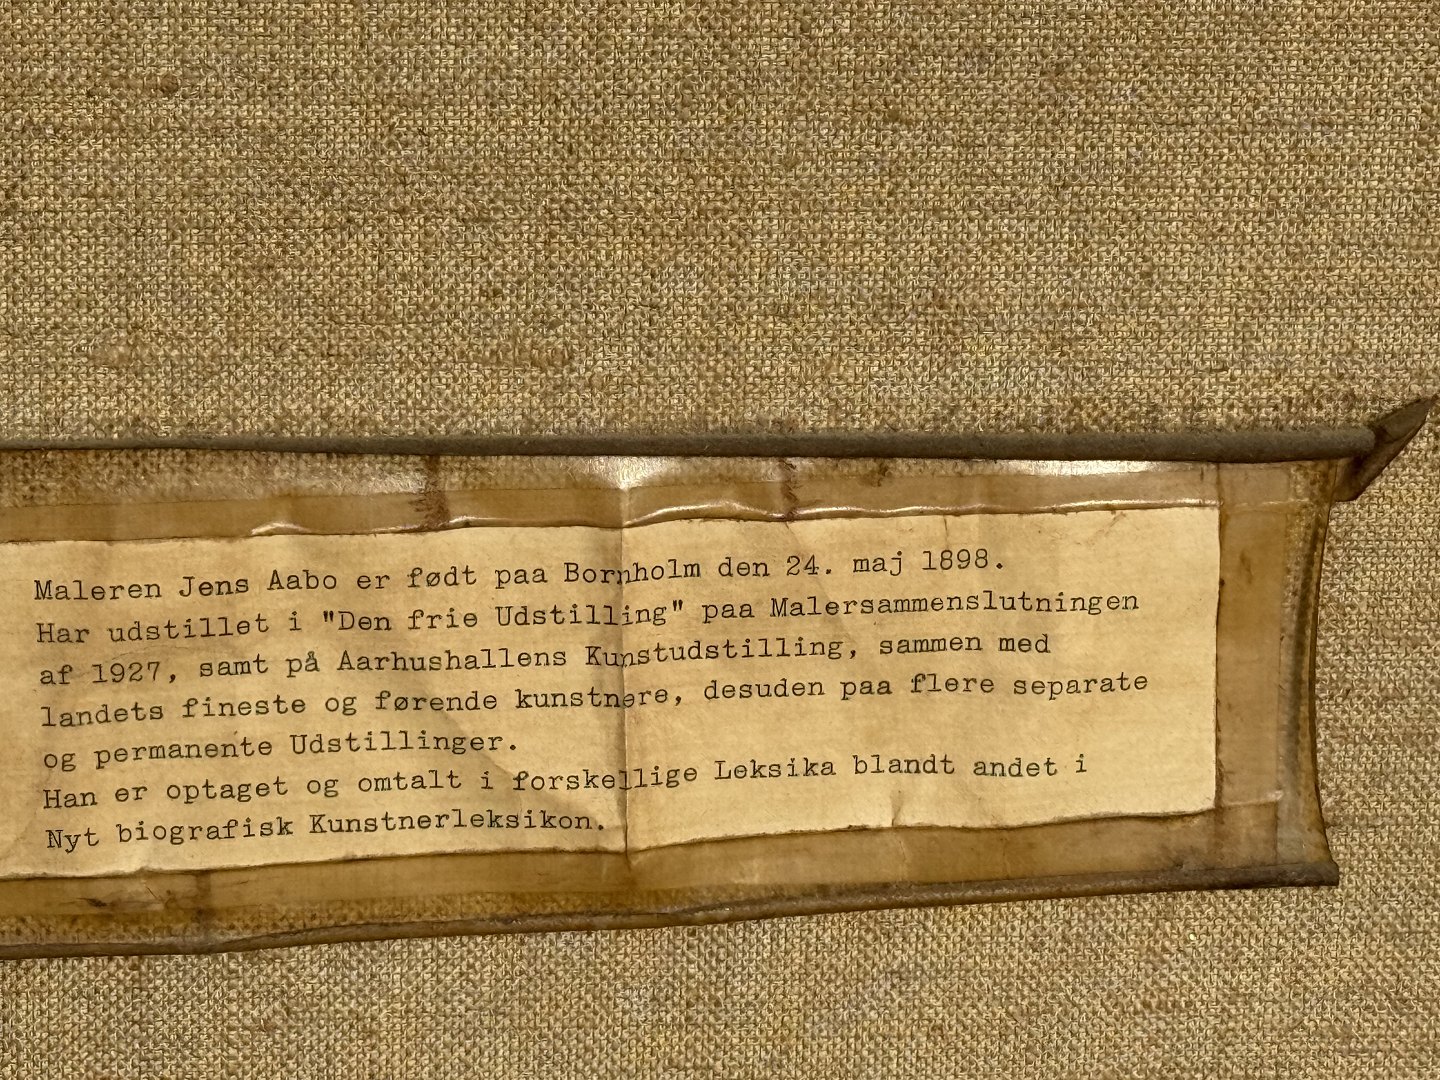 Maleren Jens Aabo er født paa Bornholm den 24. maj 1898.
Har udstillet i "Den frie Udstilling" paa Malersammenslutningen
af 1927, samt på Aarhushallens Kunstudstilling, sammen med
landets fineste og førende kunstnere, desuden paa flere separate
og permanente Udstillinger.
Han er optaget og omtalt i forskellige Leksika blandt andet i
Nyt biografisk Kunstnerleksikon.